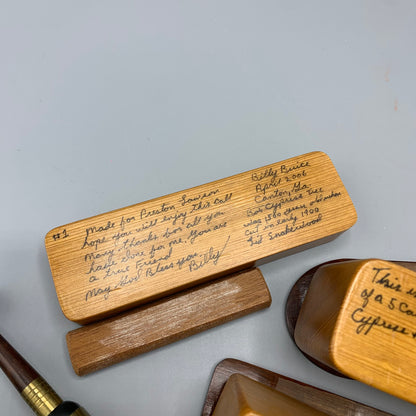 #1
Made for Preston Lawson
hope you will enjoy this Call
Many thanks for all you
have done for me, you are
a true Friend
May God Bless you
Billy
Billy Buice
April 2006
Canton, Ga
Box Cypress Tree
was 1500 years old when
Cut in early 1900
Lid Snakewood
This is
of a 5 Ca
Cypress